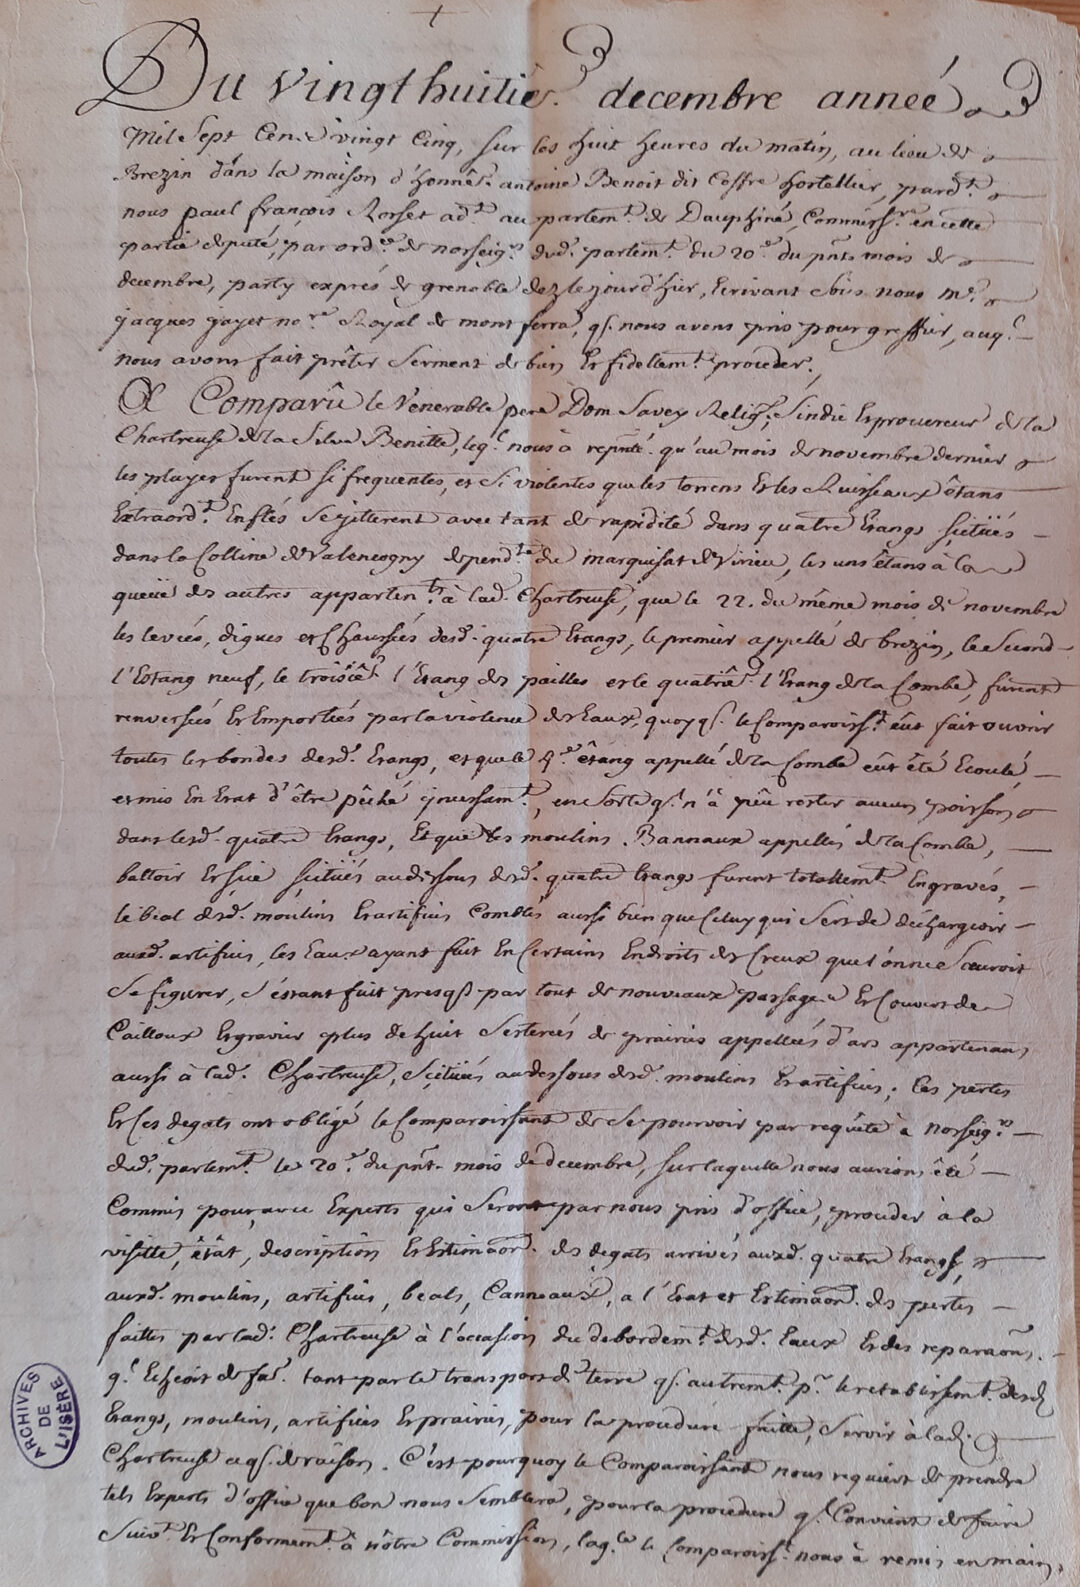 Du vingt huitiè.^e decembre année
Mil Sept Cens vingt Cinq, sur les huit heures du matin, au lieu de
Brezin dans la maison d'honnê.^e antoine Benoit dit Coffre hortellier, pard.^t
nous paul françois Rorset ad.^t au partem.^t de Dauphiné, Commiss.^re en cette
partie deputé, par ord.^ce de norseig.^rs dud. partem.^t du 20.^e du pñt mois de
decembre, party exprés de grenoble dez le jour d'hier, Ecrivant Sous nous m.^e
jacques gayet no.^re Royal de mont ferra, q. nous avons pris pour greffier, auq.^l
nous avons fait prêter Serment de bien Et fidellem.^t proceder.,
A Comparû le Venerable pere Dom Savey Relig.^x, Sindic Et procureur de la
Chartreuse de la Silve Benitte, leq.^l nous à repñté qu'au mois de novembre dernier
les pluyes furent si frequentes, et Si violentes que les torrens Et les Ruisseaux êtans
Extraord.^t Enflés Se jetterent avec tant de rapidité dans quatre Etangs scitüés
dans la Colline de Valencogny depend.^te du marquisat de Virieu, les uns êtans à la
queüe des autres apparten.^ts à lad. Chartreuse, que le 22. du même mois de novembre
les levées, digues et Chaussées desd. quatre Etangs, le premier appellé de brezin, le Second
l'Estang neuf, le troisiê.^e l'Etang des pailles et le quatriê.^e l'Etang de la Combe, furent
renversées Et Emportées par la violence des Eaux, quoy q. le Comparoiss.^t eût fait ouvrir
toutes les bondes desd. Etangs, et que le 4.^e êtang appellé de la Combe eût êté Ecoulé
et mis En Etat d'être pêché incessam.^t, en Sorte q. n'à peû rester aucun poisson
dans lesd. quatre Etangs, Et que les moulins Bannaux appellés de la Combe,
battoir Et scie scitüés au dessous desd. quatre Etangs furent totallem.^t Engravés,
le béal desd. moulins Et artifices Comblés aussi bien que Celuy qui Sert de déchargeoir
auxd. artifices, les Eaux ayant fait En Certains Endroits des Creux que l'on ne Sauroit
Se figurer, S'étant fait presq. par tout de nouveaux passages Et Couvert de
Cailloux Et gravier plus de huit Seterées de prairies appellées d'ars appartenans
aussi à lad. Chartreuse, Scitüées au dessous desd. moulins Et artifices; Ces pertes
Et Ces degats ont obligé le Comparoissant de Se pourvoir par requête à norseig.^rs
dud. partem.^t le 20.^e du pñt mois de decembre, sur laquelle nous aurions êté
Commis pour, avec Experts qui Seront par nous pris d'office, proceder à la
visitte, êtat, description Et Estimaõn. des degats arrivés auxd. quatre Etangs,
auxd. moulins, artifices, beals, Canneaux, a l'Etat et Estimaõn. des pertes
faittes par lad. Chartreuse à l'occasion du debordem.^t desd. Eaux Et des reparaõns.
q.^l Echeoit de fai.^e tant par le transport de terre q. autrem.^t p.^r le retablissem.^t desd.
Etangs, moulins, artifices Et prairies, pour la procedure faitte, Servir à lad.
Chartreuse ce q. de raison. C'est pourquoy le Comparoissant nous requiert de prendre
tels Experts d'office que bon nous Semblera, pour la procedure q.^l Convient de faire
Suiv.^t Et Conformem.^t à nôtre Commission, laq.^le le Comparoiss.^t nous à remis en main,
ARCHIVES
DE
L'ISÈRE